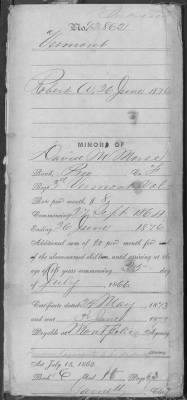 No. 158621
Vermont
Robert A. 26 June 1876
MINORS OF
David M. Morse
Rank, Pvt Co. F
Regt 3d Vermont Vols
Rate per month $ 8
Commencing 27 Sept 1864
Ending 26 June 1876
Additional sum of $2 per month for each
of the above-named children until arriving at the
age of 16 years commencing 25
July 1866
Certificate dated 24 May 1873
and sent 3 June 1873
Payable at Montpelier Agency
Act July 14, 1862
Book C Vol. 16 Page 63